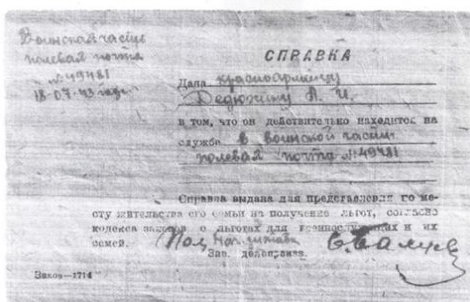 Воинская часть
полевая почта
№ 49481
18-07-43 года
СПРАВКА
Дана красноармейцу
Дедюхину А. И.
в том, что он действительно находится на
службе в воинской части
полевая почта № 49481
Справка выдана для представления по ме-
сту жительства его семьи на получение льгот, согласно
кодекса законов о льготах для военнослужащих и их
семей.
Зав. делопроизв.
Заказ—1714